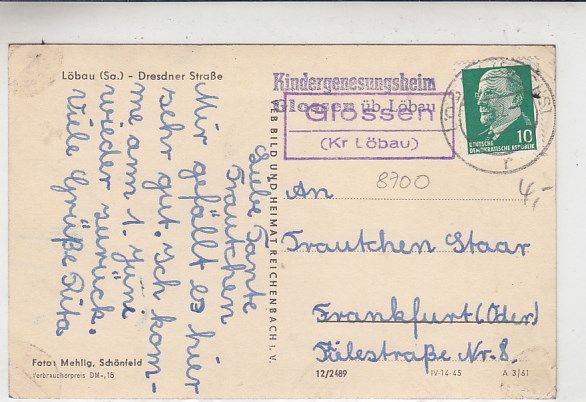 Löbau (Sa.) - Dresdner Straße
Liebe Tante
Trautchen
Mir gefällt es hier
sehr gut. Ich kom-
me am 1. Juni
wieder zurück.
Viele Grüße Rita
Foto: Mehlig, Schönfeld
Verbraucherpreis DM -,18
VEB BILD UND HEIMAT REICHENBACH i. V.
Kindergenesungsheim
Glossen üb. Löbau
Glossen
(Kr Löbau)
10
DEUTSCHE
DEMOKRATISCHE REPUBLIK
8700
4,-
An
Trautchen Staar
Frankfurt (Oder)
Nr. 8.
12/2489 IV-14-45 A 3/61